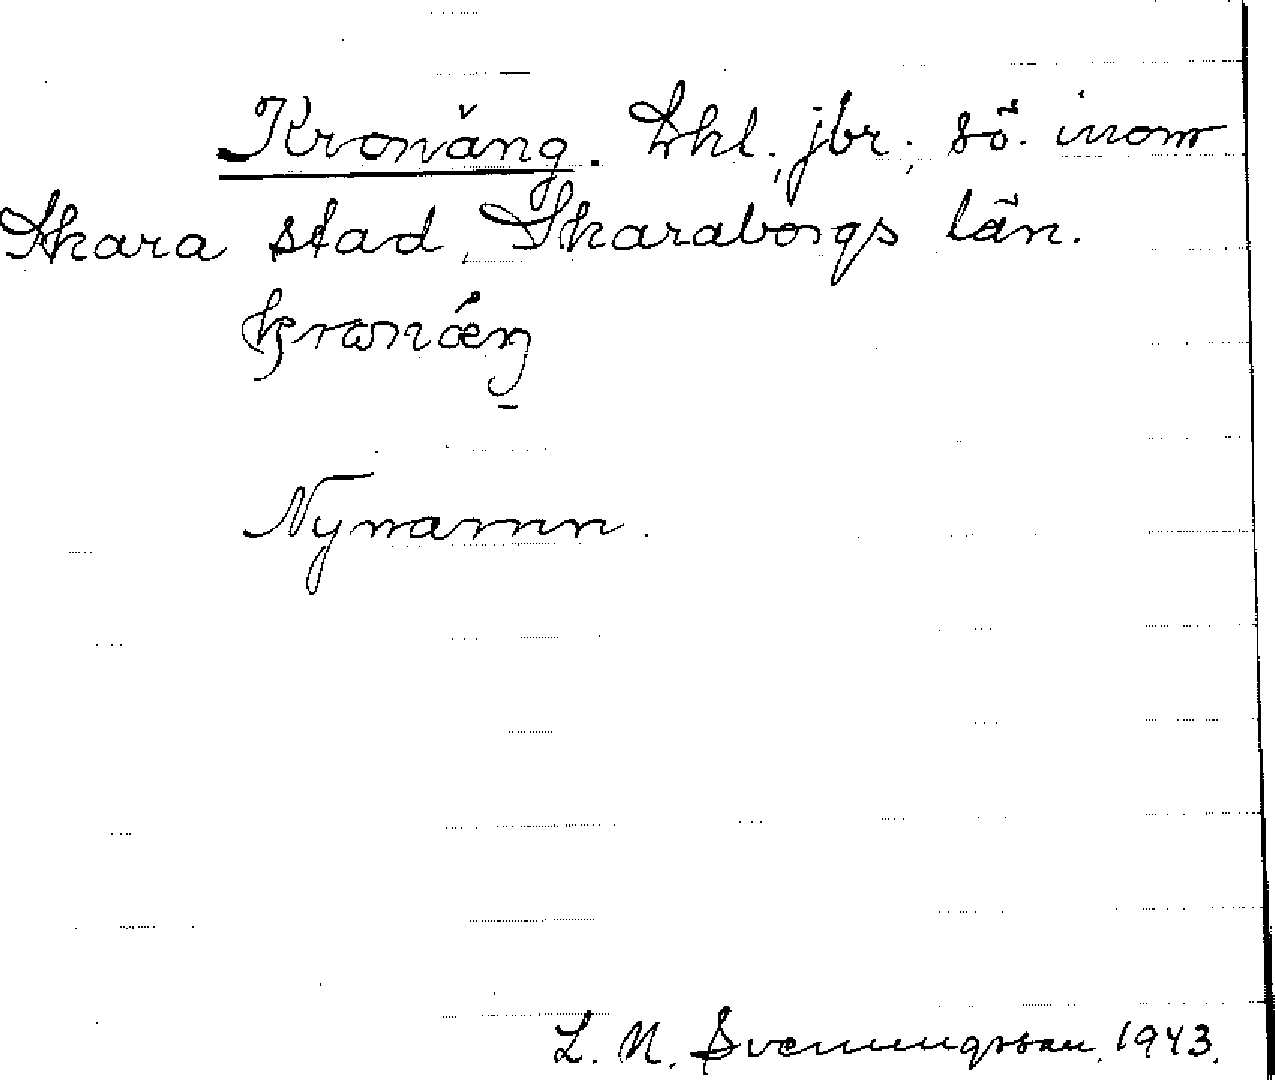 Kronäng. Lhl., jbr., sö. inom
Skara stad, Skaraborgs län.
kronǽŋ
Nynamn.
L. N. Svenungsson. 1943.